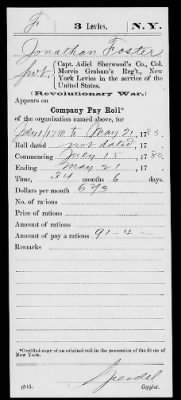 F 3 Levies. N.Y.
Jonathan Foster
Pvt., Capt. Adiel Sherwood's Co., Col.
Morris Graham's Reg't, New
York Levies in the service of the
United States.
(Revolutionary War.)
Appears on
Company Pay Roll*
of the organization named above, for
to May 21, 178
Roll dated not dated, 17
Commencing July 15, 1780.
Ending May 21, 17
Time, months 6 days.
Dollars per month 6 2/3
No. of rations
Price of rations
Amount of rations
Amount of pay a rations 91-4
Remarks
*Certified copy of an original roll in the possession of the State of
New York.
Copyist.